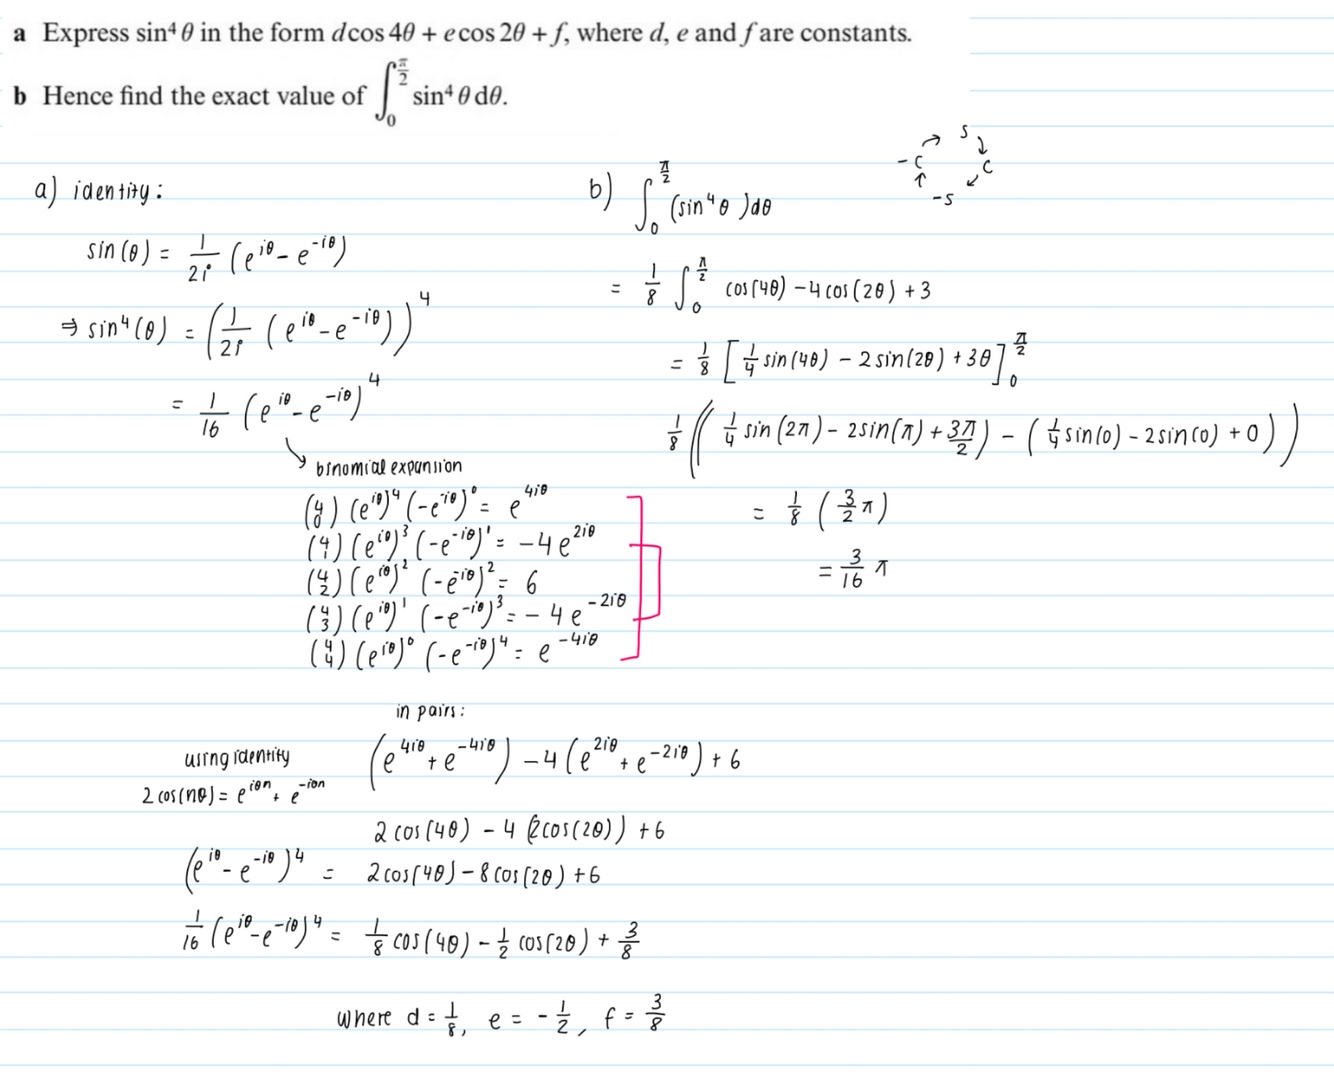 a Express sin⁴ θ in the form d cos 4θ + e cos 2θ + f, where d, e and f are constants.
b Hence find the exact value of ∫₀^(π/2) sin⁴ θ dθ.
a) identity:
sin(θ) = 1/2i (e^(iθ) - e^(-iθ))
⇒ sin⁴(θ) = (1/2i (e^(iθ) - e^(-iθ)))⁴
= 1/16 (e^(iθ) - e^(-iθ))⁴
↘ binomial expansion
(4 0) (e^(iθ))⁴ (-e^(-iθ))⁰ = e^(4iθ)
(4 1) (e^(iθ))³ (-e^(-iθ))¹ = -4e^(2iθ)
(4 2) (e^(iθ))² (-e^(-iθ))² = 6
(4 3) (e^(iθ))¹ (-e^(-iθ))³ = -4e^(-2iθ)
(4 4) (e^(iθ))⁰ (-e^(-iθ))⁴ = e^(-4iθ)
in pairs:
(e^(4iθ) + e^(-4iθ)) - 4(e^(2iθ) + e^(-2iθ)) + 6
using identity
2cos(nθ) = e^(iθn) + e^(-iθn)
2cos(4θ) - 4(2cos(2θ)) + 6
(e^(iθ) - e^(-iθ))⁴ = 2cos(4θ) - 8cos(2θ) + 6
1/16 (e^(iθ) - e^(-iθ))⁴ = 1/8 cos(4θ) - 1/2 cos(2θ) + 3/8
where d = 1/8, e = -1/2, f = 3/8
b) ∫₀^(π/2) (sin⁴θ)dθ
S
-C → C
-S
= 1/8 ∫₀^(π/2) cos(4θ) - 4cos(2θ) + 3
= 1/8 [1/4 sin(4θ) - 2sin(2θ) + 3θ]₀^(π/2)
1/8 ((1/4 sin(2π) - 2sin(π) + 3π/2) - (1/4 sin(0) - 2sin(0) + 0))
= 1/8 (3/2 π)
= 3/16 π